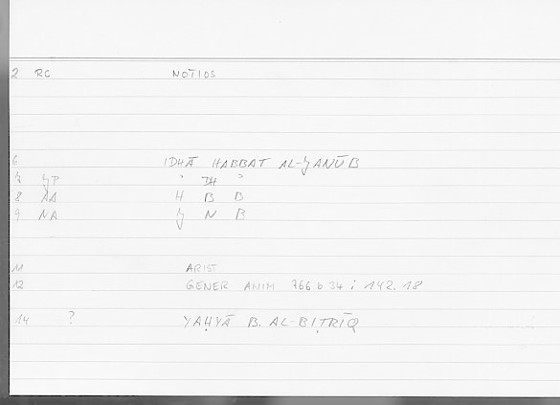 2 RG NOTIOS
6 IDHĀ HABBAT AL-ǦANŪB
7 ǦP ʾ DH ʾ
8 NA H B B
9 NA Ǧ N B
11 ARIST
12 GENER ANIM 766 b 34 ; 142.18
14 ? YAḤYĀ B. AL-BIṬRĪQ